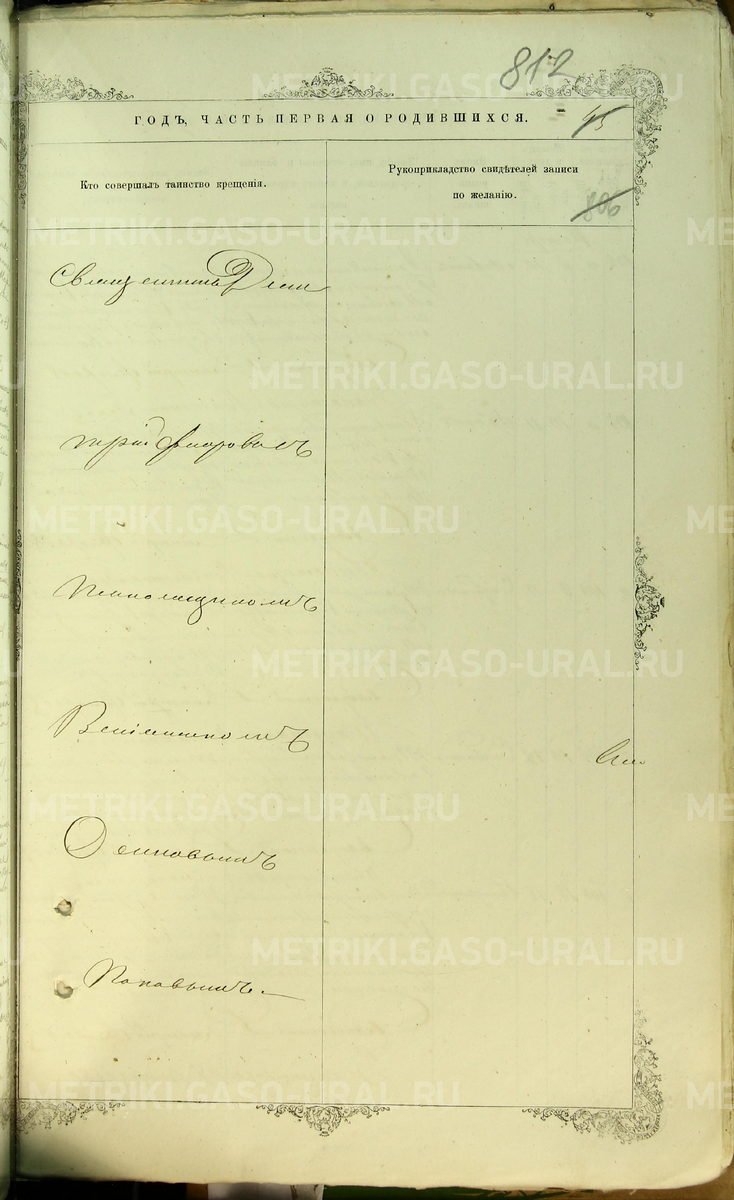 812
ГОДЪ, ЧАСТЬ ПЕРВАЯ О РОДИВШИХСЯ.
45
Кто совершалъ таинство крещенія.
Рукоприкладство свидѣтелей записи
по желанію.
806
Священникъ
Псаломщикомъ
Осиповымъ
Поповымъ.
METRIKI.GASO-URAL.RU